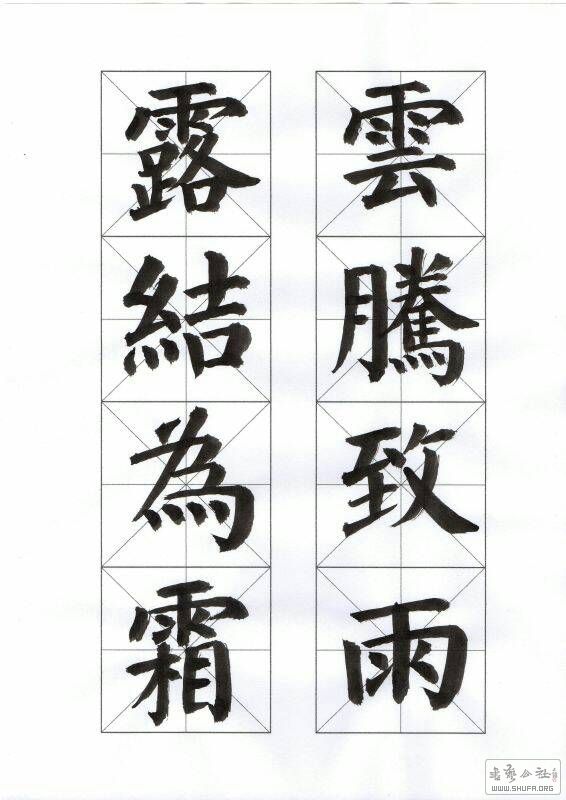 雲騰致雨
露結為霜
WWW.SHUFA.ORG